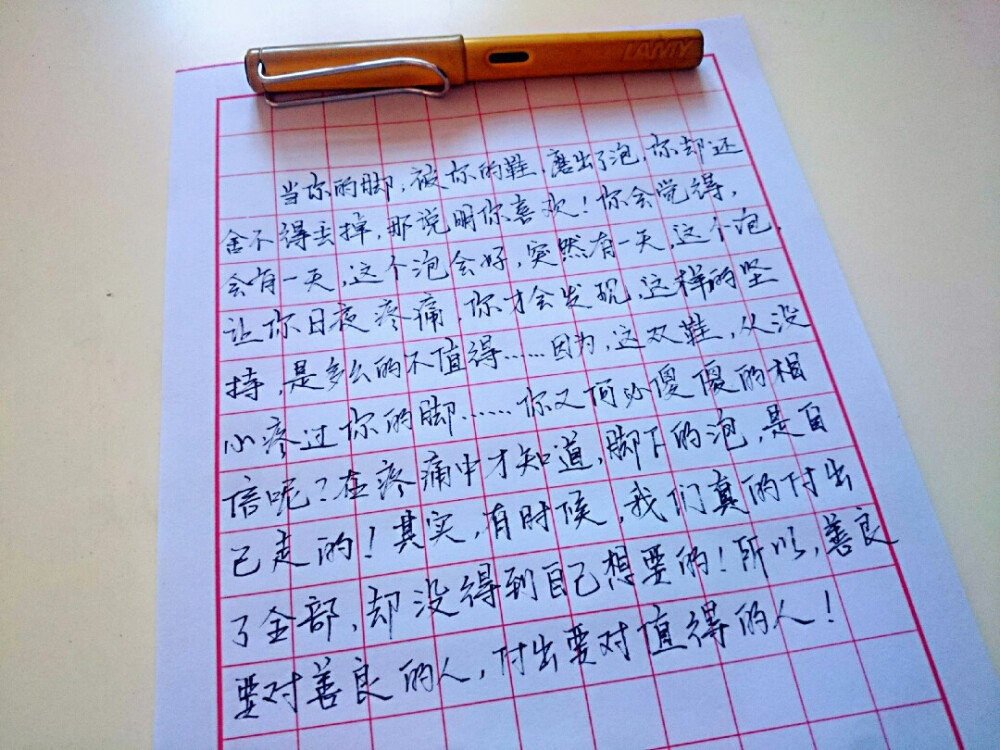 LAMY
当你的脚，被你的鞋，磨出了泡，你却还
舍不得丢掉，那说明你喜欢！你会觉得，
会有一天，这个泡会好，突然有一天，这个泡，
让你日夜疼痛，你才会发现，这样的坚
持，是多么的不值得……因为，这双鞋，从没
心疼过你的脚……你又何必傻傻的相
信呢？在疼痛中才知道，脚下的泡，是自
己走的！其实，有时候，我们真的付出
了全部，却没得到自己想要的！所以，善良
要对善良的人，付出要对值得的人！